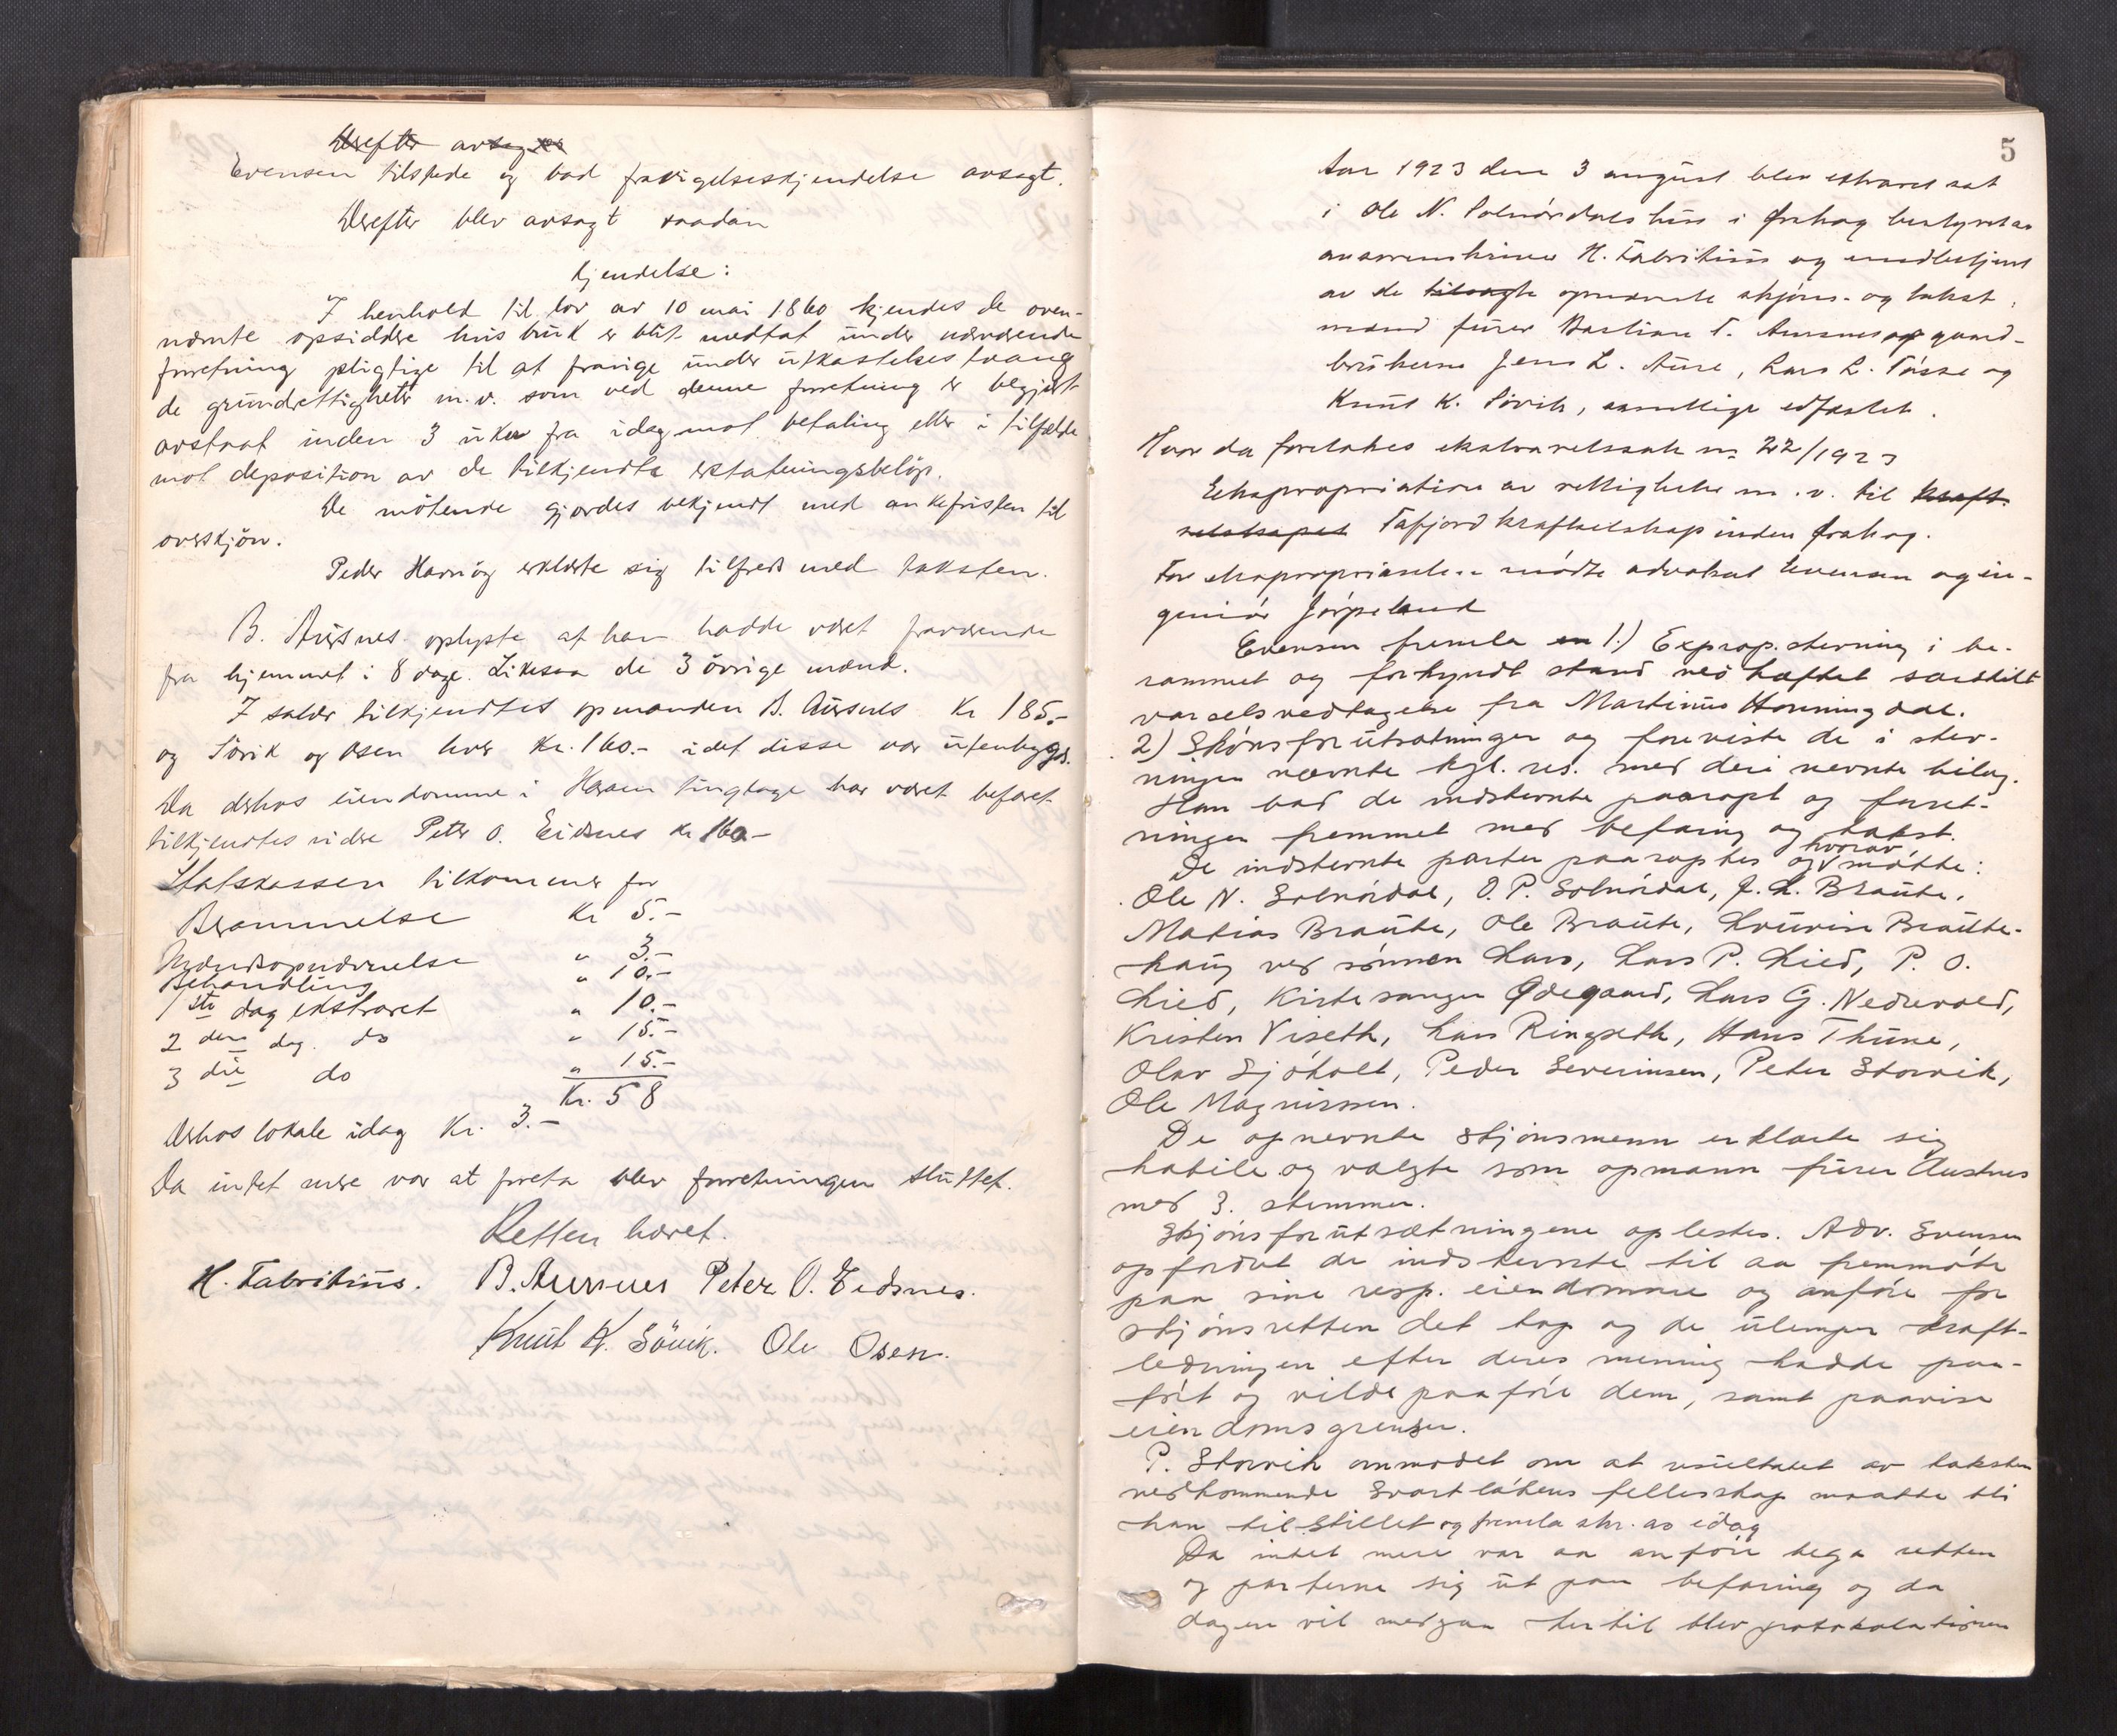 Derefter avsagdes
Evensen tilstede og bad fravigelseskjendelse avsagt.
Derefter blev avsagt saadan
kjendelse:
I henhold til lov av 10 mai 1860 kjendes de oven-
nævnte opsiddere hvis bruk er blit medtat under nærværende
forretning pligtige til at fravige under utkastelsestvang
de grundrettigheter m.v. som ved denne forretning er begjært
avstaat inden 3 uker fra idag mot betaling eller i tilfælde
mot deposition av de tilkjendte erstatningsbeløp.
De møtende gjordes bekjendt med ankefristen til
overskjøn.
Peder Havnøy erklærte sig tilfreds med taksten.
B. Aursnes oplyste at han hadde været fraværende
fra hjemmet i 8 dage. Likesaa de 3 øvrige mænd.
I salær tilkjendtes opmanden B. Aursnes Kr 185.-
og Søvik og Osen hver Kr. 160.- idet disse var utenbygds.
Da derhos eiendomme i Haram tinglage har været befaret
tilkjendtes videre Peter O. Eidsnes kr 160.-
Statskassen tilkommer for
Berammelse Kr 5.-
Mændsopnævnelse " 3.-
Behandling " 10.-
1ste dag ekstraret " 10.-
2 den dag. do " 15.-
3 die do " 15.-
Kr. 58
derhos lokale idag Kr. 3.-
Da intet mere var at foreta blev forretningen sluttet.
Retten hævet.
H. Fabritius. B. Aursnes Peter O. Eidsnes.
Knut K. Søvik. Ole Osen.
5
Aar 1923 den 3 august blev ekstraret sat
i Ole N. Solnørdals hus i Ørskog bestyret av
av sorenskriver H. Fabritius og meddbetjent
av de tilsagte opnævnte skjøns- og takst-
mænd fører Bastian T. Aursnes og gaard-
brukerne Jens L. Aure, Lars L. Tøsse og
Knut K. Søvik, samtlige edfæstet.
Hvor da foretokes ekstraretssak no 22/1923
Ekspropriation av rettigheter m.v. til kraft-
selskapet Tafjord kraftselskap inden Ørskog.
For ekspropriantene møtte advokat Evensen og in-
geniør Jørpeland
Evensen fremla en 1.) Exprop. stevning i be-
rammet og forkyndt stand ved hæftet særskilt
varselsvedtagelse fra Martinus Honningdal.
2) Skjønsforutsætninger og foreviste de i stev-
ningen nævnte kgl. res. med deri nevnte bilag.
Han bad de indstevnte paaropt og forret-
ningen fremmet med befaring og takst.
De indstevnte parter paaroptes og hvorav møtte:
Ole N. Solnørdal, O. P. Solnørdal, J. L. Braute,
Matias Braute, Ole Braute, Lovise Braute-
haug ved sønnen Lars, Lars P. Lied, P. O.
Lied, Kirkesanger Ødegaard, Lars G. Nedrevold,
Kristen Viseth, Lars Ringseth, Hans Thune,
Olav Sjøholt, Peder Severinsen, Peter Storvik,
Ole Magnussen.
De opnevnte skjønsmenn erklærte sig
habile og valgte som opmann fører Aursnes
med 3. stemmer.
Skjønsforutsætningene oplestes. Adv. Evensen
opfordret de indstevnte til aa fremmøte
paa sine resp. eiendomme og anføre for
skjønsretten det tap og de ulemper kraft-
ledningen efter deres mening hadde paa-
ført og vilde paaføre dem, samt paavise
eiendomsgrenser.
P. Storvik anmodet om at resultatet av taksten
vedkommende Svartløkens fellesskap maatte bli
ham tilstillet og fremla skr. av idag
Da intet mere var aa anføre bega retten
og parterne sig ut paa befaring og da
dagen vil medgaa hertil blev protokolationen